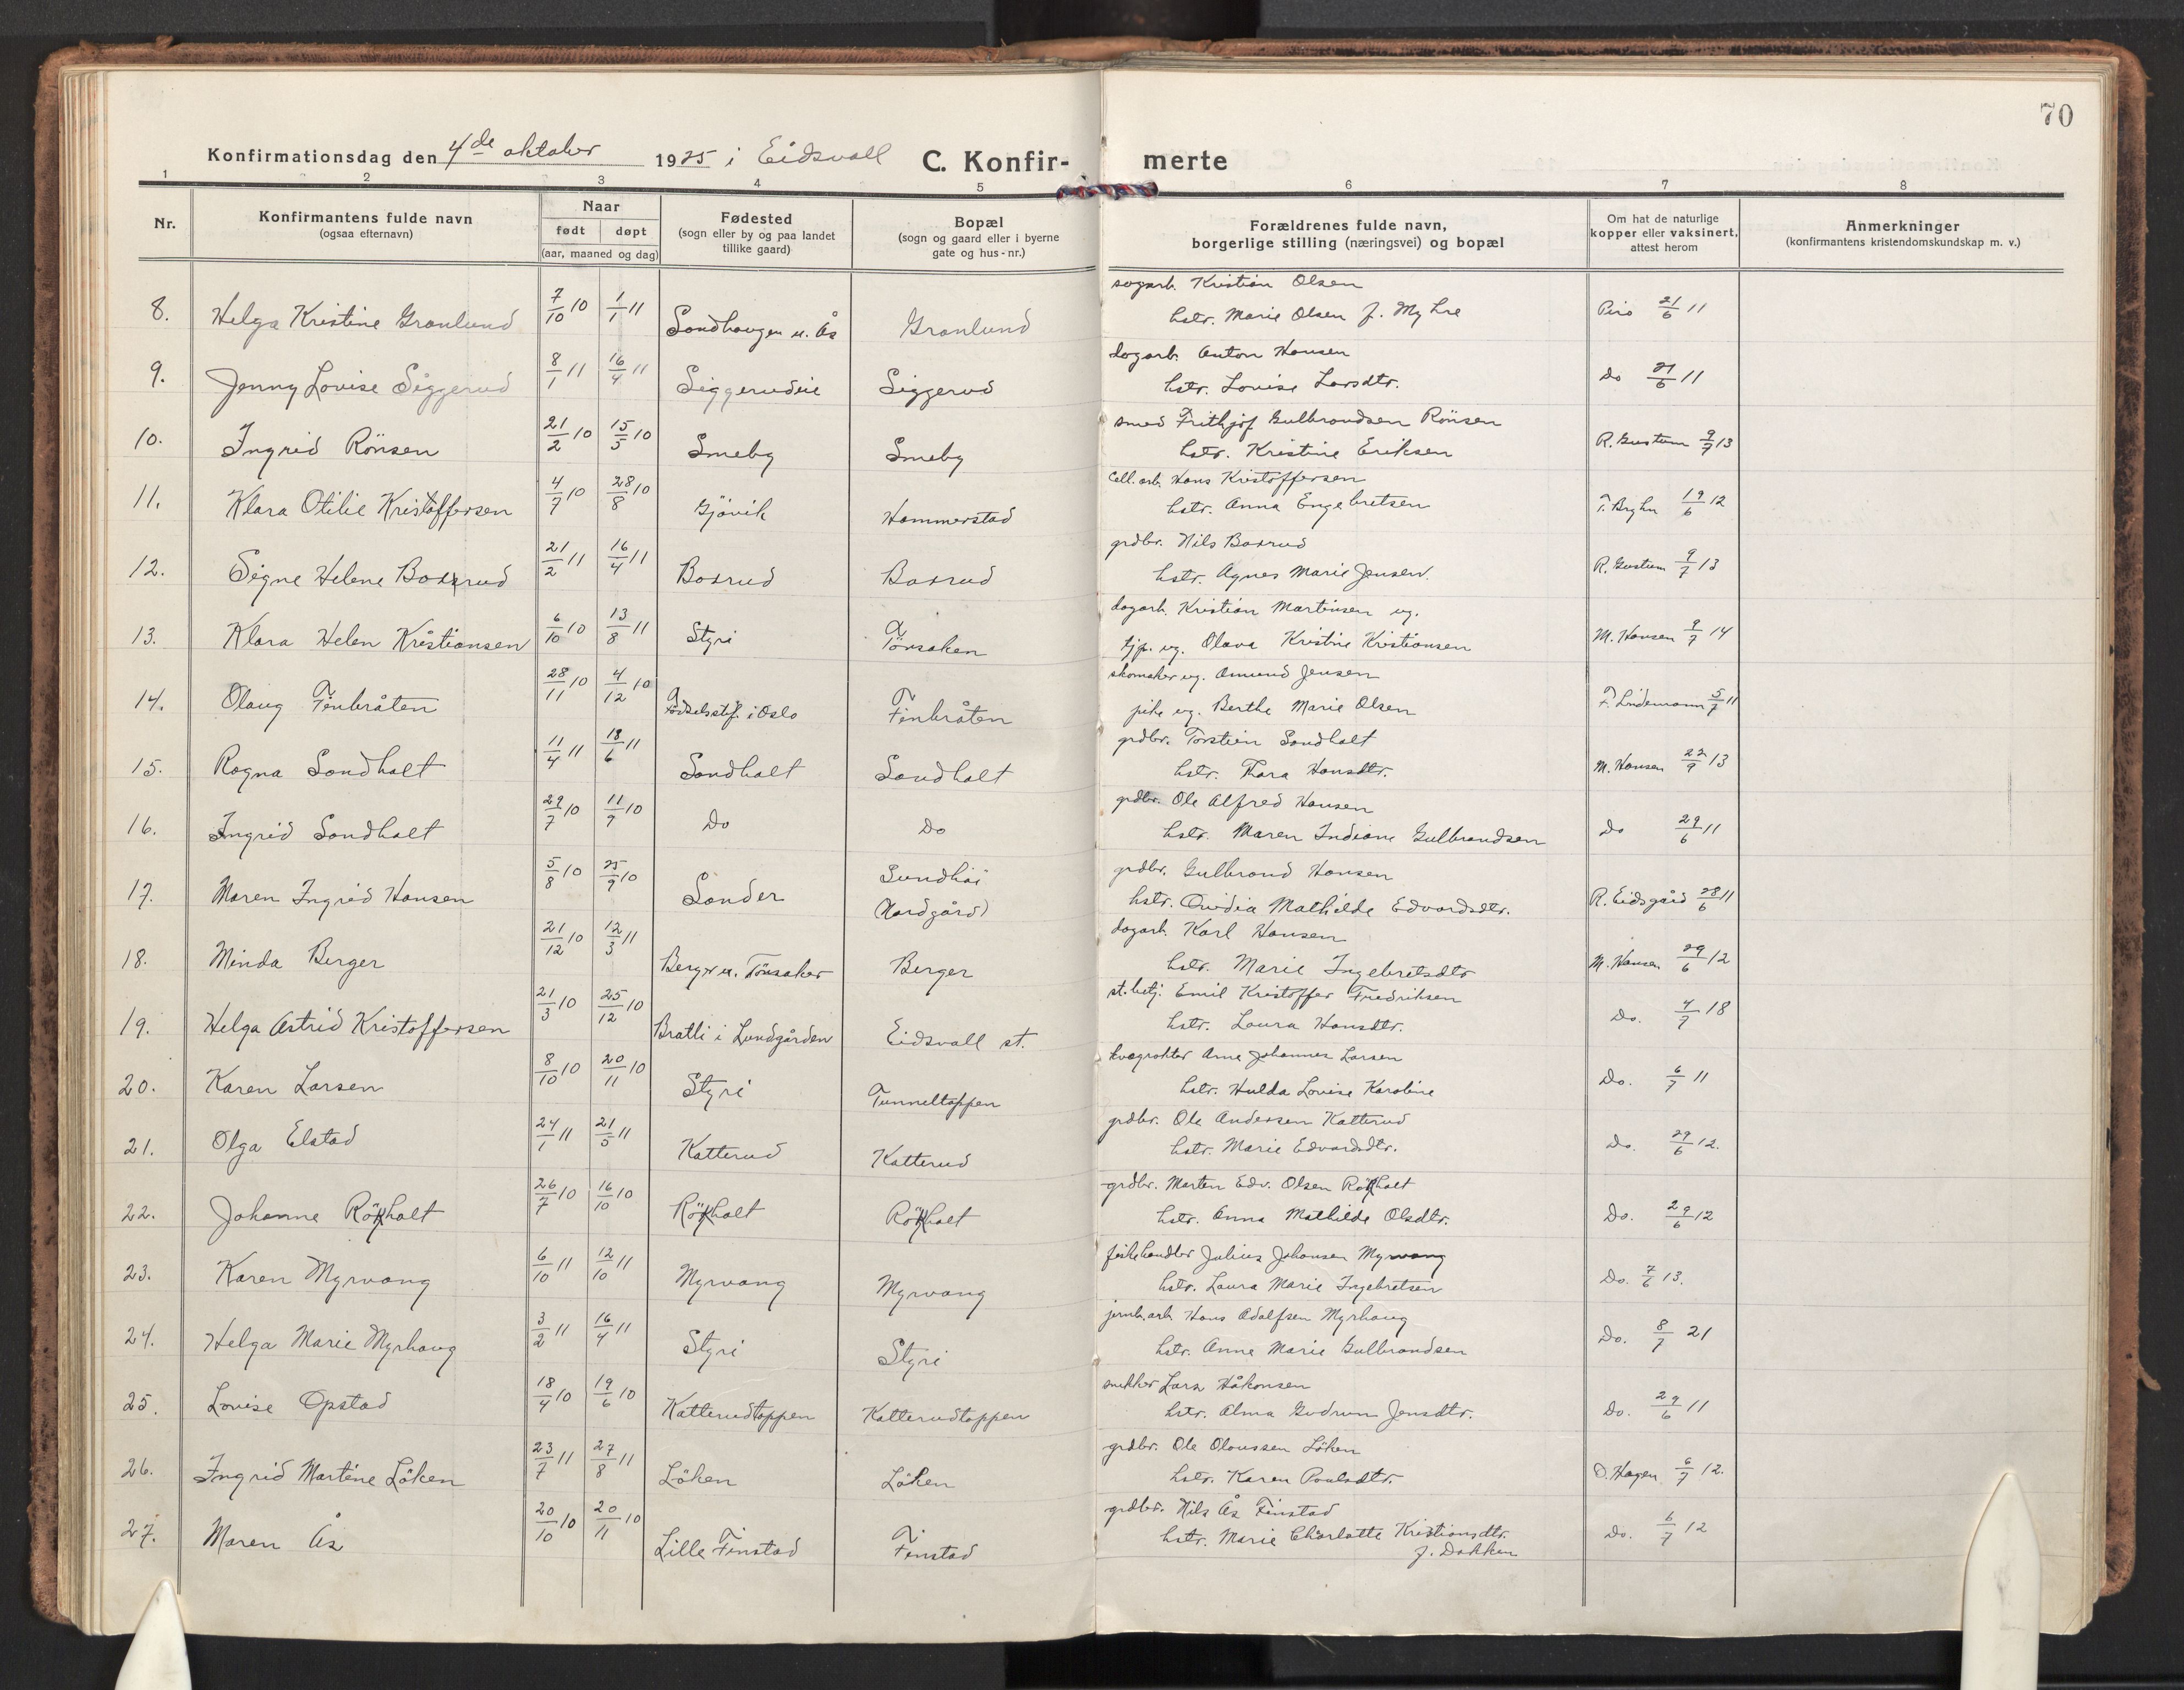 70
Konfirmationsdag den 4de oktober 1925 i Eidsvoll C. Konfir- merte
1 2 3 4 5 6 7 8
Nr.
Konfirmantens fulde navn
(ogsaa efternavn)
Naar
født døpt
(aar, maaned og dag)
Fødested
(sogn eller by og paa landet
tillike gaard)
Bopæl
(sogn og gaard eller i byerne
gate og hus-nr.)
Forældrenes fulde navn,
borgerlige stilling (næringsvei) og bopæl
Om hat de naturlige
kopper eller vaksinert,
attest herom
Anmerkninger
(konfirmantens kristendomskundskap m. v.)
sagarb. Kristian Olsen
8. Helga Kristine Granlund 7/10 10 1/1 11 Sandhaugen u. Ås Granlund hstr. Marie Olsen f. Myhre Piro 21/6 11
dagarb. Anton Hansen
9. Jenny Lovise Siggerud 8/1 11 16/4 11 Siggerudeie Siggerud hstr. Lovise Larsdtr. Do 21/6 11
smed Frithjof Gulbrandsen Rönsen
10. Ingrid Rönsen 21/2 10 15/5 10 Smeby Smeby hstr. Kristine Eriksen R. Gustum 9/7 13
Cell. arb. Hans Kristoffersen
11. Klara Otilie Kristoffersen 4/7 10 28/8 10 Gjövik Hammerstad hstr. Anna Engebretsen T. Bryhn 19/6 12
grdbr. Nils Boxrud
12. Signe Helene Boxrud 21/2 11 16/4 11 Boxrud Boxrud hstr. Agnes Marie Jensen. R. Gustum 9/7 13
dagarb. Kristian Martinsen ug.
13. Klara Helen Kristiansen 6/10 10 13/8 11 Styri Tönsaken tjp. ug. Olava Kristine Kristiansen M. Hansen 9/7 14
skomaker ug. Amund Jensen
14. Olaug Finbråten 28/11 10 4/12 10 Födselsstif. i Oslo Finbråten pike ug. Berthe Marie Olsen F. Lindemann 5/7 11
grdbr. Torstein Sandholt
15. Ragna Sandholt 11/4 11 18/6 11 Sandholt Sandholt hstr. Thora Hansdtr. M. Hansen 22/9 13
grdbr. Ole Alfred Hansen
16. Ingrid Sandholt 29/7 10 11/9 10 Do Do hstr. Maren Indiane Gulbrandsen Do 29/6 11
grdbr. Gulbrand Hansen
17. Maren Ingrid Hansen 5/8 10 25/9 10 Sander Sundhai (Nordgård) hstr. Ovidia Mathilde Edvardsdtr. R. Eidsgård 28/6 11
dagarb. Karl Hansen
18. Minda Berger 21/12 10 12/3 11 Berger u. Tönsaker Berger hstr. Marie Ingebretsdtr M. Hansen 29/6 12
st. betj. Emil Kristoffer Fredriksen
19. Helga Astrid Kristoffersen 21/3 10 25/12 10 Bratli i Lundgården Eidsvoll st. hstr. Laura Hansdtr. Do. 4/7 18
kvægrökter Arne Johannes Larsen
20. Karen Larsen 8/10 10 20/11 10 Styri Tunneltoppen hstr. Hulda Lovise Karoline Do. 6/7 11
grdbr. Ole Andersen Katterud
21. Olga Elstad 24/1 11 21/5 11 Katterud Katterud hstr. Marie Edvardsdtr. Do. 29/6 12.
grdbr. Morten Edv. Olsen Rökholt
22. Johanne Rökholt 26/7 10 16/10 10 Rökholt Rökholt hstr. Anna Mathilde Olsdtr. Do. 29/6 12
fiskehandler Julius Johansen Myrvang
23. Karen Myrvang 6/10 11 12/10 11 Myrvang Myrvang hstr. Laura Marie Ingebretsen Do. 7/6 13.
jernb. arb. Hans Adolfsen Myrhaug
24. Helga Marie Myrhaug 3/2 11 16/4 11 Styri Styri hstr. Anne Marie Gulbrandsen Do. 8/7 21
snekker Lars Håkonsen
25. Lovise Opstad 18/4 10 19/6 10 Katterudtoppen Katterudtoppen hstr. Alma Gudrun Jensdtr. Do. 29/6 11
grdbr. Ole Olaussen Löken
26. Ingrid Martine Löken 23/7 11 27/8 11 Löken Löken hstr. Karen Poulsdtr. O. Hagen 6/7 12.
grdbr. Nils Ås Finstad
27. Maren Ås 20/10 10 20/11 10 Lille Finstad Finstad hstr. Marie Charlotte Kristiansdtr. Do. 6/7 12
f. Dokken